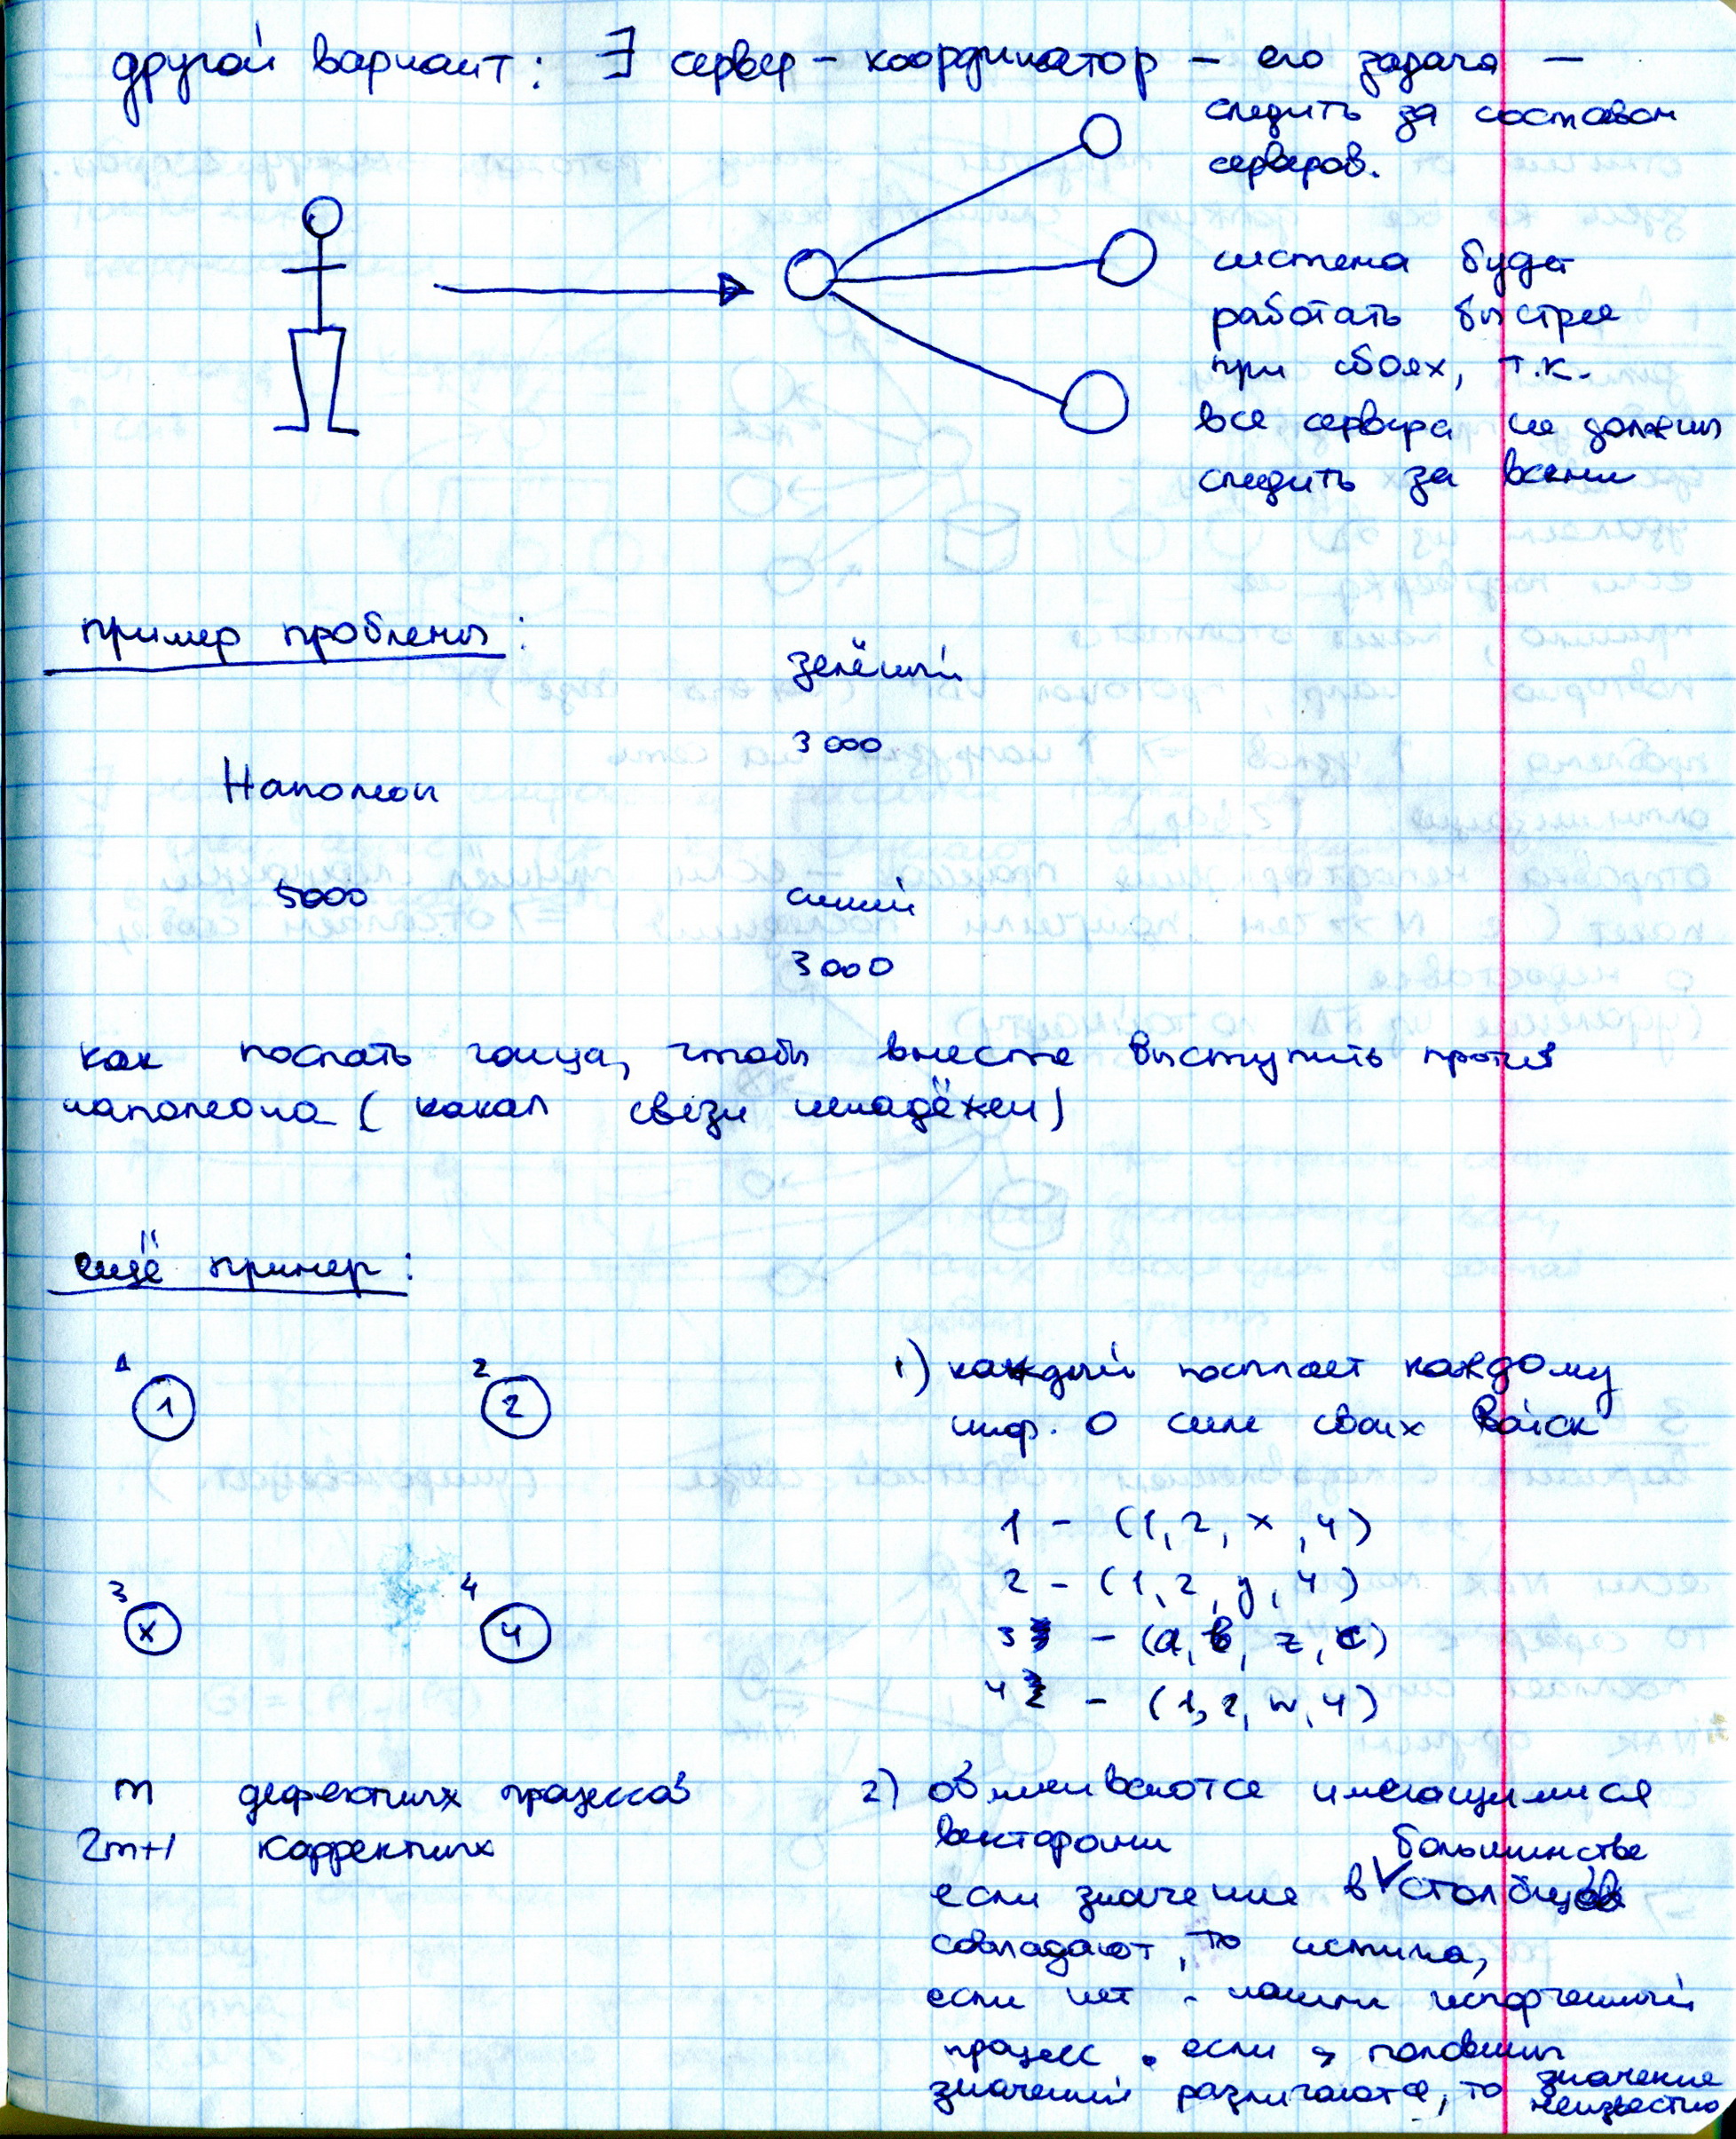 другой вариант: ∃ сервер - координатор - его задача -
следить за составом
серверов.
система будет
работать быстрее
при сбоях, т.к.
все сервера не должны
следить за всеми
пример проблемы:
зелёный
3000
Наполеон
5000
синий
3000
как послать гонца, чтобы вместе выступить против
наполеона (канал связи ненадёжен)
ещё пример:
1 1
2 2
3 x
4 4
1) каждый посылает каждому
инф. о силе своих войск
1 - (1, 2, x, 4)
2 - (1, 2, y, 4)
3 - (a, b, z, c)
4 - (1, 2, w, 4)
m дефектных процессов
2m+1 корректных
2) обмениваются имеющимися
векторами
если значение в большинстве столбцов
совпадают, то истина,
если нет - нашли испорченный
процесс. если > половины
значений различаются, то значение
неизвестно